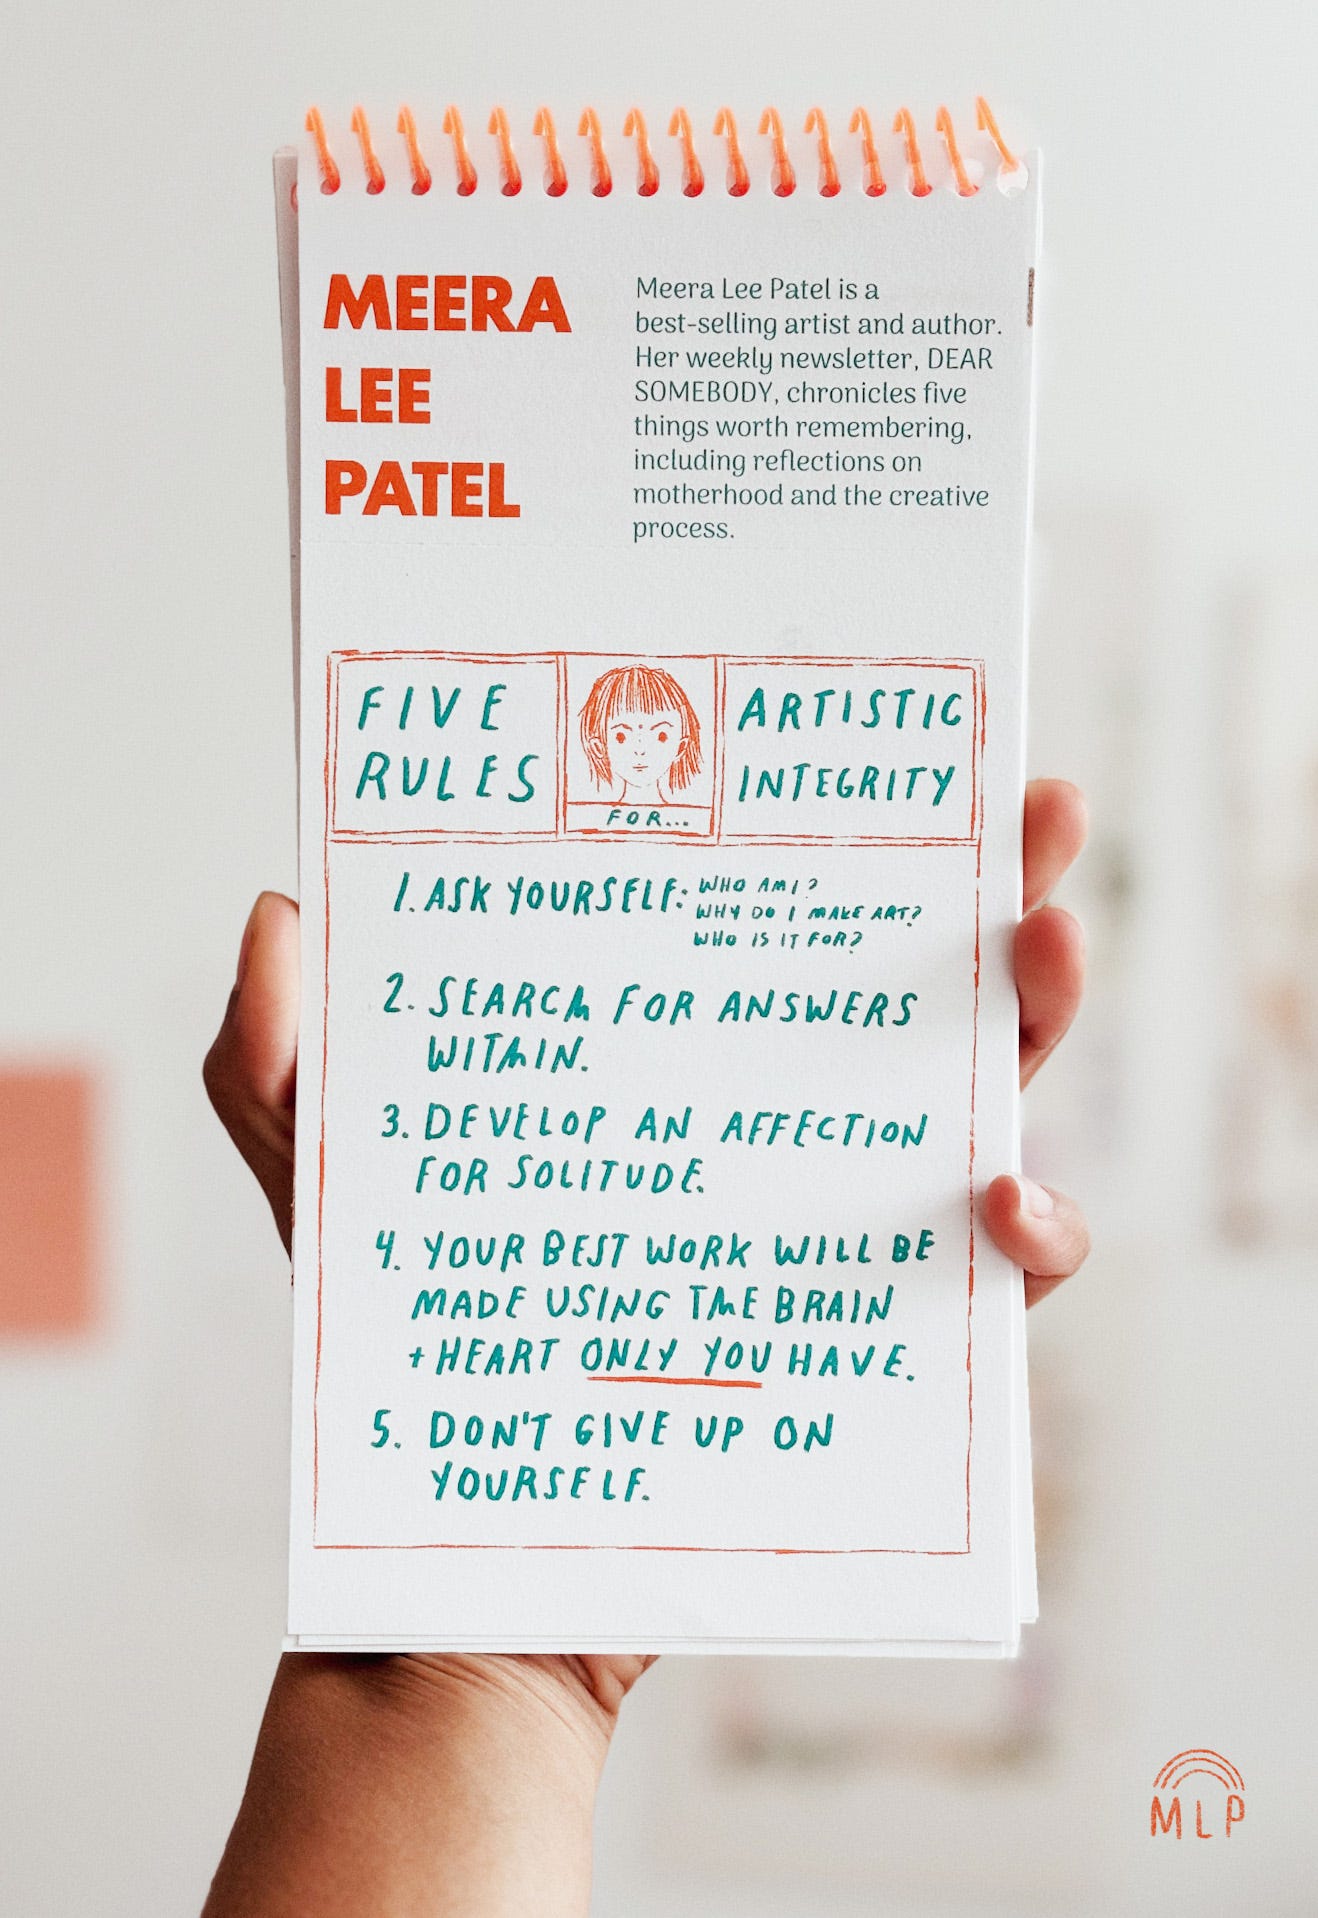 MEERA
LEE
PATEL
Meera Lee Patel is a
best-selling artist and author.
Her weekly newsletter, DEAR
SOMEBODY, chronicles five
things worth remembering,
including reflections on
motherhood and the creative
process.
FIVE
RULES
FOR...
ARTISTIC
INTEGRITY
1. ASK YOURSELF: WHO AM I?
WHY DO I MAKE ART?
WHO IS IT FOR?
2. SEARCH FOR ANSWERS
WITHIN.
3. DEVELOP AN AFFECTION
FOR SOLITUDE.
4. YOUR BEST WORK WILL BE
MADE USING THE BRAIN
+ HEART ONLY YOU HAVE.
5. DON'T GIVE UP ON
YOURSELF.
MLP